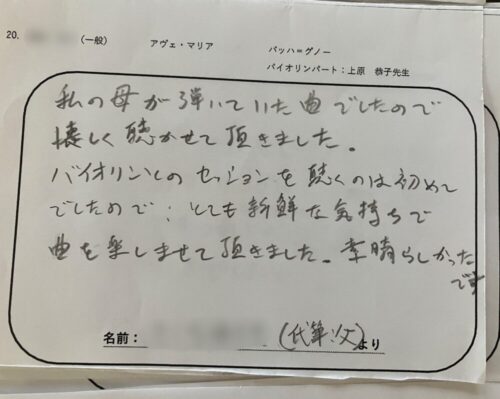 20. (一般) アヴェ・マリア バッハ=グノー
バイオリンパート:上原 恭子先生
私の母が弾いていた曲でしたので
懐しく聴かせて頂きました。
バイオリンとのセッションを聴くのは初めて
でしたので、とても新鮮な気持ちで
曲を楽しませて頂きました。素晴らしかった
です
名前: (代筆:父)より